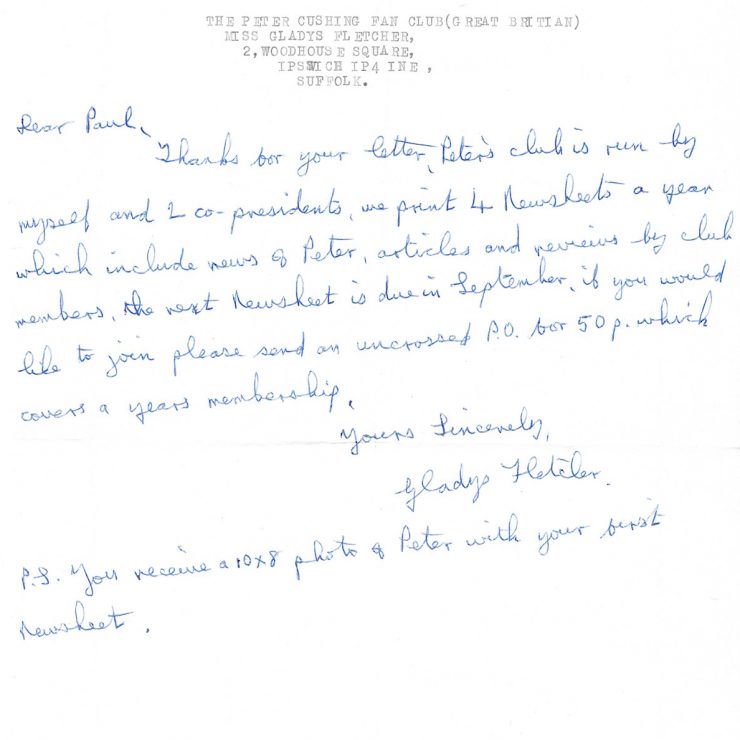 THE PETER CUSHING FAN CLUB(GREAT BRITIAN)
MISS GLADYS FLETCHER,
2,WOODHOUSE SQUARE,
IPSWICH IP4 INE ,
SUFFOLK.
Dear Paul,
Thanks for your letter, Peter's club is run by
myself and 2 co-presidents, we print 4 Newsheets a year
which include news of Peter, articles and reviews by club
members, the next Newsheet is due in September, if you would
like to join please send an uncrossed P.O. for 50p. which
covers a years membership,
Yours Sincerely,
Gladys Fletcher.
P.S. You receive a 10x8 photo of Peter with your first
Newsheet.